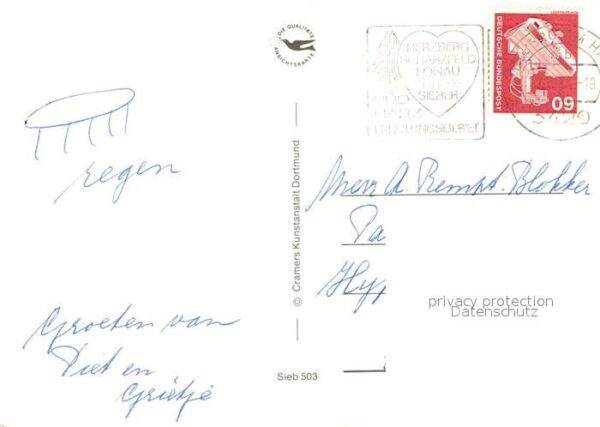 regen
Groeten van
Piet en
Grietje
DIE QUALITÄTS
ANSICHTSKARTE
© Cramers Kunstanstalt Dortmund
Sieb 503
HERZBERG
SCHARZFELD
LONAU
SIEBER
ERHOLUNGSGEBIET
DEUTSCHE BUNDESPOST
60
Mevr A. Rempt-Blokker
Pa
Hyp
privacy protection
Datenschutz